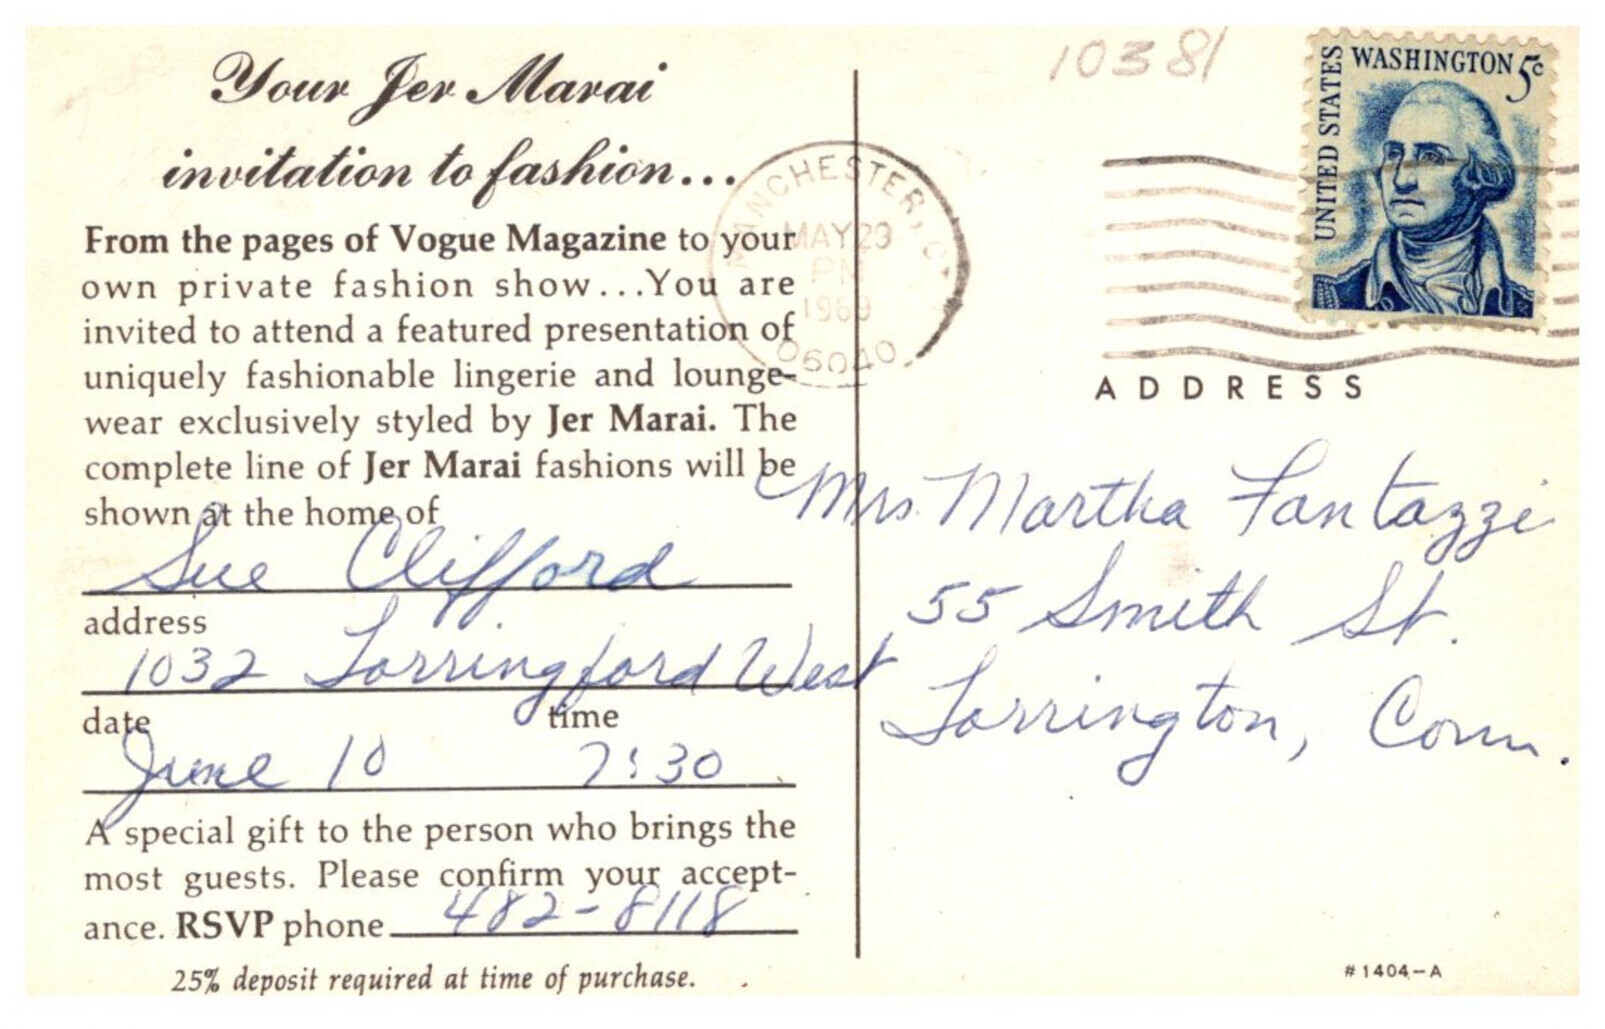 Your Jer Marai
invitation to fashion...
From the pages of Vogue Magazine to your
own private fashion show...You are
invited to attend a featured presentation of
uniquely fashionable lingerie and lounge-
wear exclusively styled by Jer Marai. The
complete line of Jer Marai fashions will be
shown at the home of
Sue Clifford
address
1032 Torringford West
date time
June 10 7:30
A special gift to the person who brings the
most guests. Please confirm your accept-
ance. RSVP phone 482-8118
25% deposit required at time of purchase.
10381
UNITED STATES
WASHINGTON 5¢
MANCHESTER, CT
MAY 29
PM
1969
06040
ADDRESS
Mrs Martha Fantazzi
55 Smith St.
Torrington, Conn.
#1404-A